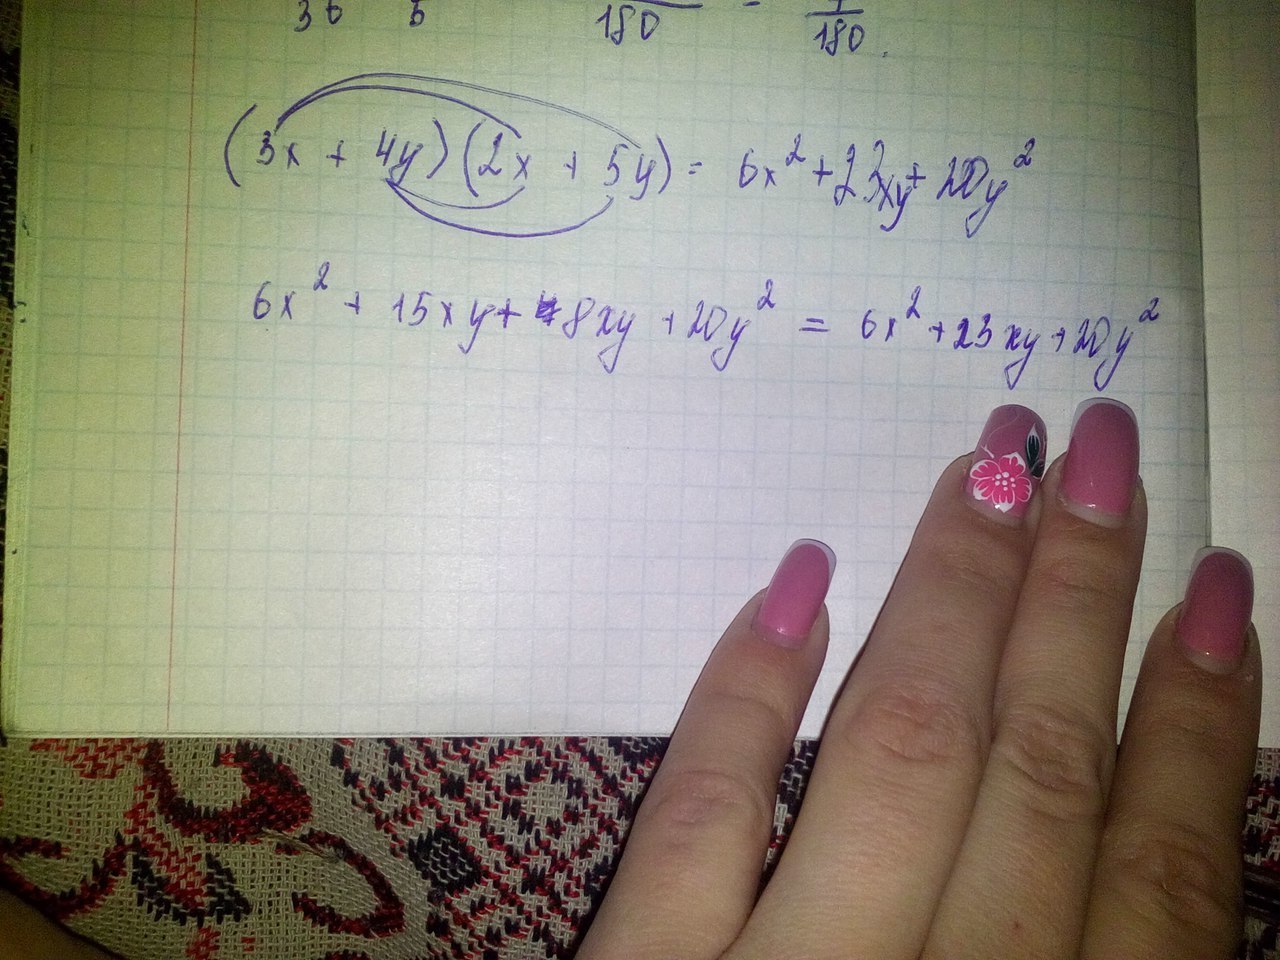 36 5 180 - 180.
(3x + 4y)(2x + 5y) = 6x² + 23xy + 20y²
6x² + 15xy + 8xy + 20y² = 6x² + 23xy + 20y²